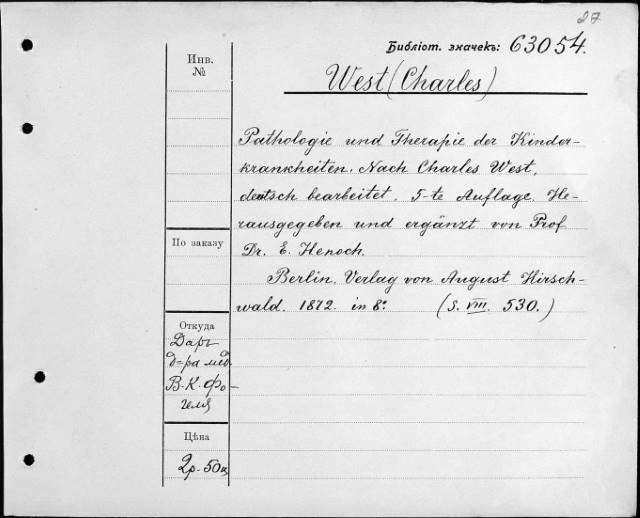 27
Библіот. значекъ: 63054.
West (Charles)
Инв.
№
Pathologie und Therapie der Kinder-
krankheiten. Nach Charles West,
deutsch bearbeitet. 5-te Auflage. He-
rausgegeben und ergänzt von Prof
Dr. E. Henoch.
Berlin. Verlag von August Hirsch-
wald. 1872. in 8º (S. VIII. 530.)
По заказу
Откуда
Даръ
д=ра мед.
В. К. Фо-
геля
Цѣна
2р-50к